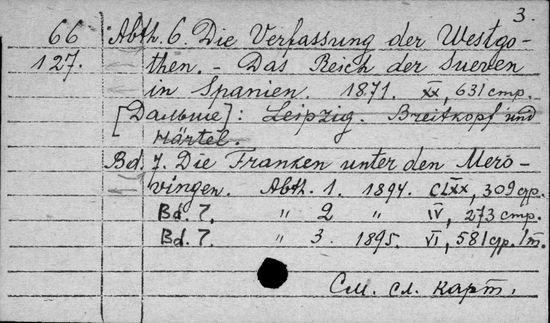 3.
66 Abth. 6. Die Verfassung der Westgo-
127. then. - Das Reich der Sueven
in Spanien. 1871. XX, 631 стр.
[Дальше]: Leipzig. Breitkopf und
Härtel.
Bd. 7. Die Franken unter den Mero-
vingen. Abth. 1. 1894. CLXX, 309 стр.
Bd. 7. " 2 " IV, 273 стр.
Bd. 7. " 3. 1895. VI, 581 стр. 1 т.
См. сл. карт.